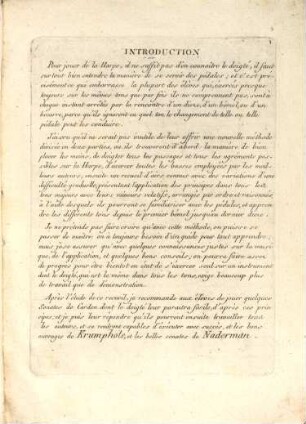 INTRODUCTION
Pour jouer de la Harpe, il ne suffit pas d'en connaître le doigté, il faut
surtout bien entendre la manière de se servir des pédales; et c'est pré-
cisément ce qui embarrasse la plupart des élèves qui, exercés presque
toujours sur les mêmes tons que par fois ils ne comprennent pas, sont à
chaque instant arrêtés par la rencontre d'un dièze, d'un bémol, ou d'un
bécarre, parce qu'ils ignorent en quel ton le changement de telle ou telle
pédale peut les conduire.
J'ai cru qu'il ne serait pas inutile de leur offrir une nouvelle méthode
divisée en deux parties, où ils trouveront d'abord la manière de bien
placer les mains, de doigter tous les passages et tous les agréments pos-
sibles sur la Harpe, d'exercer toutes les basses employées par les meil-
leurs auteurs, ensuite un recueil d'airs connus avec des variations d'une
difficulté graduelle, présentant l'application des principes dans tous les
tons majeurs avec leurs mineurs relatifs, arrangés par ordre et
à l'aide desquels ils pourront se familiariser avec les pédales, et appren-
dre les différents tons depuis le premier bémol jusqu'au dernier dièze.
Je ne prétends pas faire croire qu'avec cette méthode, on puisse se
passer de maître on a toujours besoin d'un guide pour tout apprendre;
mais j'ose assurer qu'avec quelques connaissances justes sur la musi-
que, de l'application, et quelques bons conseils; on pourra faire assez
de progrès pour être bientôt en état de s'exercer seul sur un instrument
dont le doigté, qui est le même dans tous les tons, exige beaucoup plus
de travail que de démonstration.
Après l'étude de ce recueil, je recommande aux élèves de jouer quelques
Sonates de Cardon dont le doigté leur paraîtra facile, d'après ces prin-
cipes, et je puis leur répondre qu'ils pourront ensuite travailler tous
les auteurs, et se rendront capables d'exécuter avec succès, et les bons
ouvrages de Krumpholz, et les belles sonates de Naderman.